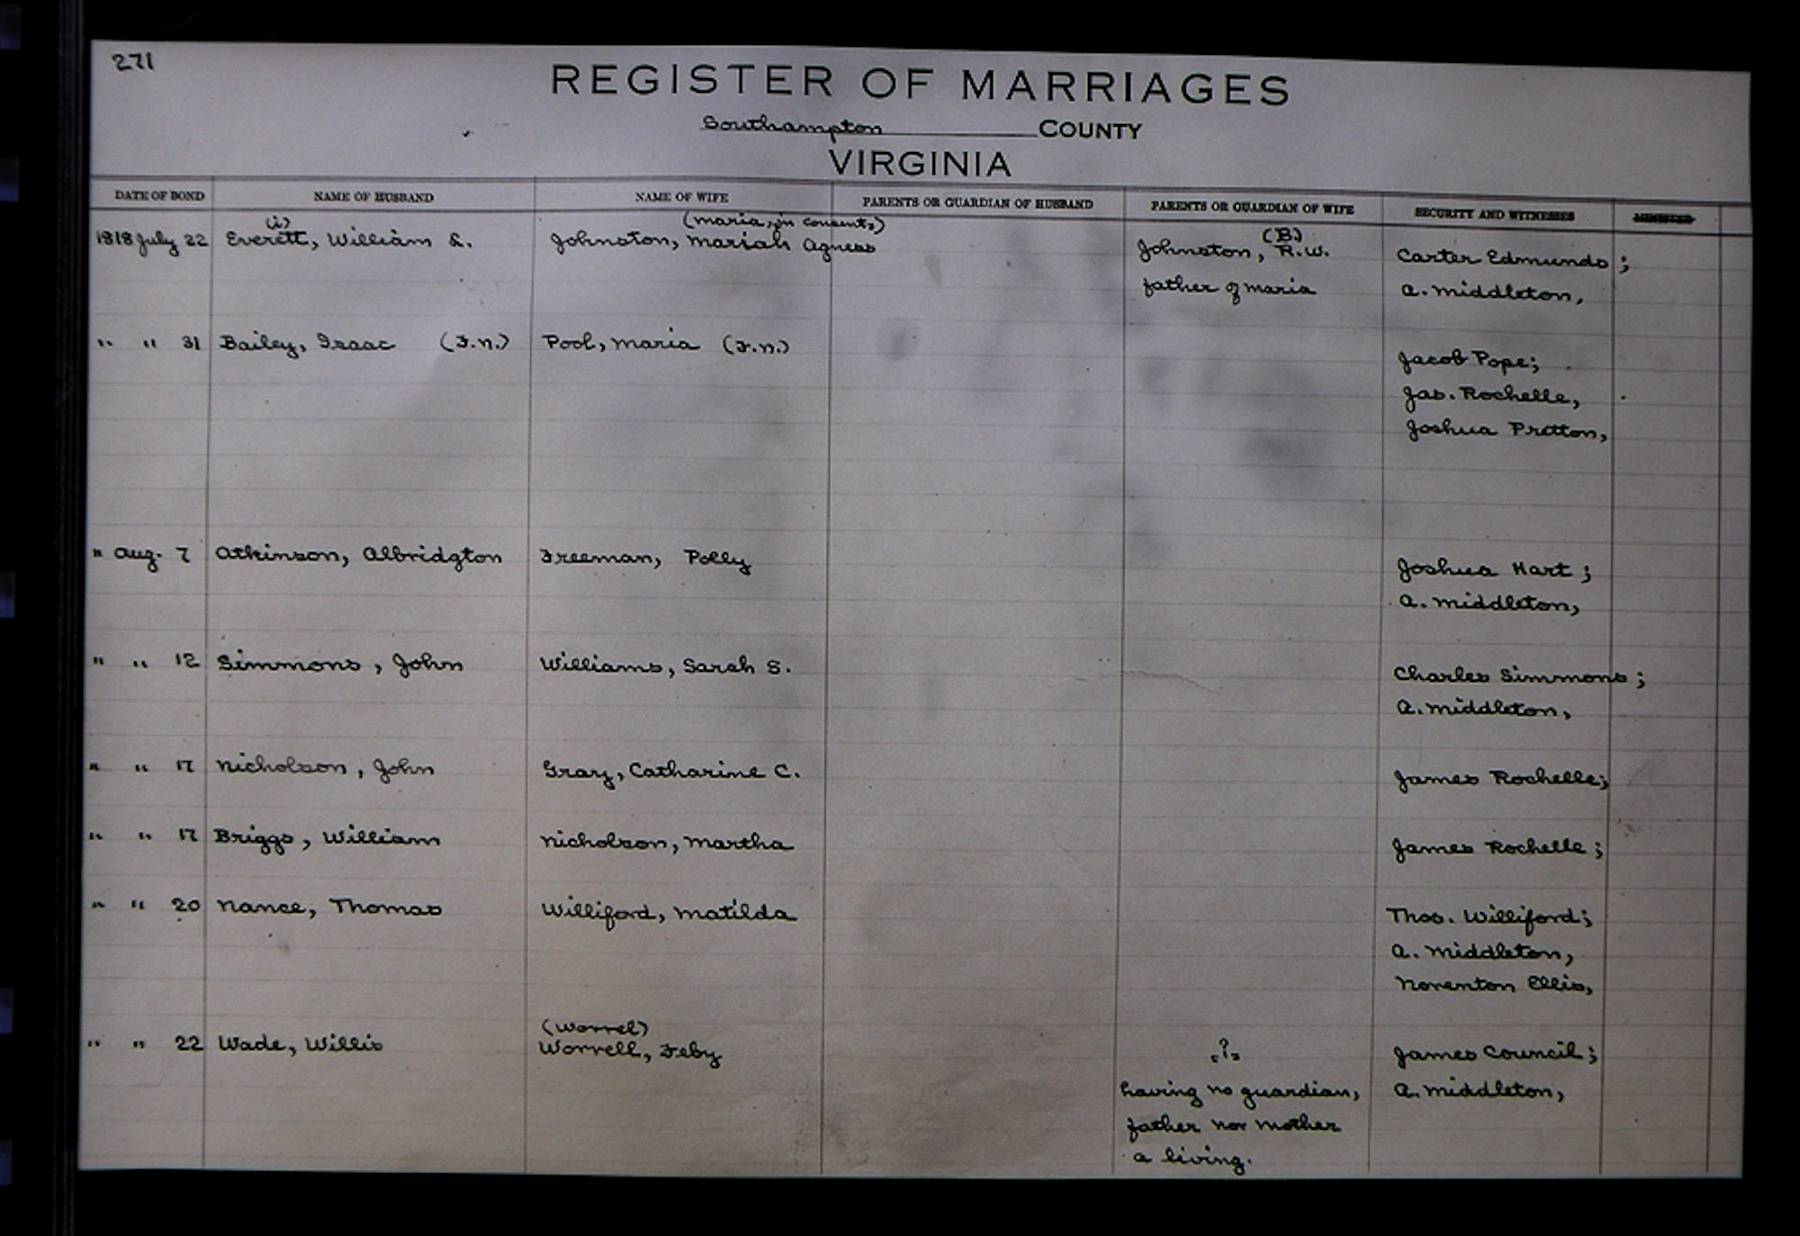 271
REGISTER OF MARRIAGES
Southampton COUNTY
VIRGINIA
DATE OF BOND NAME OF HUSBAND NAME OF WIFE PARENTS OR GUARDIAN OF HUSBAND PARENTS OR GUARDIAN OF WIFE SECURITY AND WITNESSES MINISTER
(i) (Maria, in consent,) (B.)
1818 July 22 Everett, William E. Johnston, Mariah Agness Johnston, R.W. Carter Edmunds;
father of Maria A. Middleton,
" " 31 Bailey, Isaac (F.N.) Pool, Maria (F.N.) Jacob Pope;
Jas. Rochelle,
Joshua Pretton,
" Aug. 7 Atkinson, Albridgton Freeman, Polly Joshua Hart;
A. Middleton,
" " 12 Simmons, John Williams, Sarah S. Charles Simmons;
A. Middleton,
" " 17 Nicholson, John Gray, Catharine C. James Rochelle;
" " 17 Briggs, William Nicholson, Martha James Rochelle;
" " 20 Nance, Thomas Williford, Matilda Thos. Williford;
A. Middleton,
Norenton Ellis,
(Worrel)
" " 22 Wade, Willis Worrell, Feby "?" James Council;
having no guardian, A. Middleton,
father nor mother
a living.